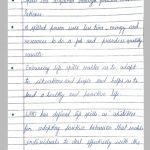 Skills are acquired through
actions.
A skilled person uses less time, energy and
resources to do a job and produces quality
results.
Enhancing life skills enables us to adapt
to situations and people and helps us to
lead a healthy and positive life.
WHO has defined life skills as abilities
for adaptive positive behavior that enables
individuals to deal effectively with the